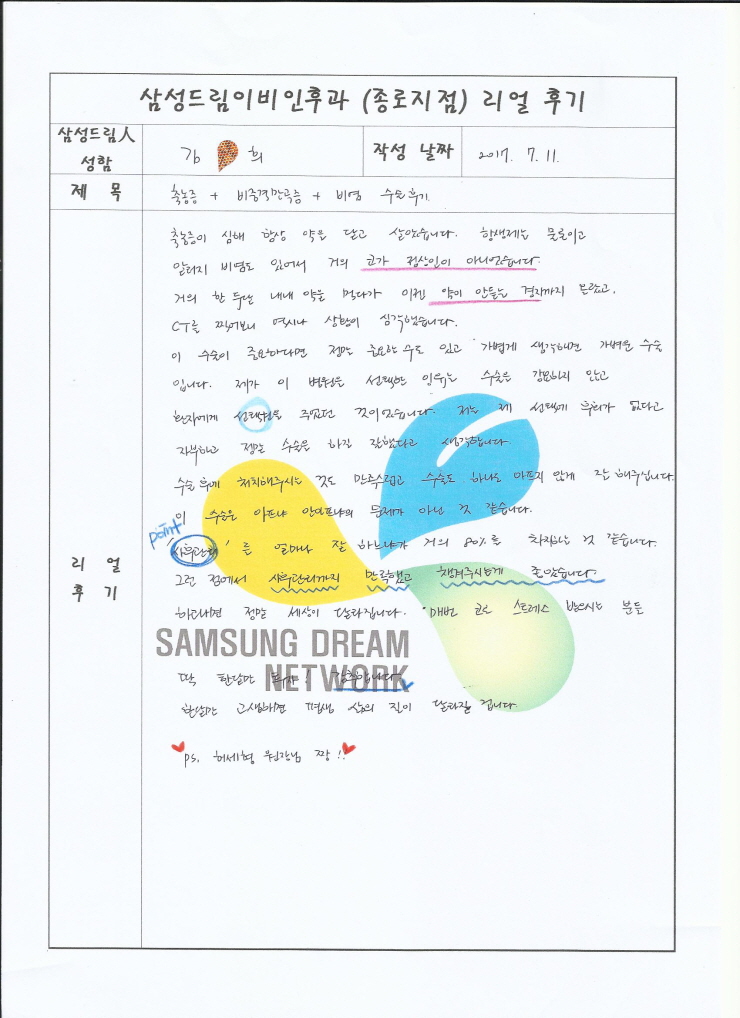 삼성드림이비인후과 (종로지점) 리얼 후기
삼성드림人 성함
김 희
작성 날짜
2017. 7. 11.
제 목
축농증 + 비중격만곡증 + 비염 수술후기.
리 얼 후 기
축농증이 심해 항상 약을 달고 살았습니다. 항생제는 물론이고
알러지 비염도 있어서 거의 코가 정상인이 아니었습니다
거의 한 두달 내내 약을 먹다가 이젠 약이 안듣는 경지까지 올랐고,
CT를 찍어보니 역시나 상황이 심각했습니다.
이 수술이 중요하다면 정말 중요한 수도 있고 가볍게 생각하면 가벼운 수술
입니다. 제가 이 병원을 선택한 이유는 수술을 강요하지 않고
환자에게 선택권을 주었던 것이었습니다. 저는 제 선택에 후회가 없다고
자부하고 정말 수술을 하길 잘했다고 생각합니다.
수술 후에 처치해주시는 것도 만족스럽고 수술도 하나도 아프지 않게 잘 해주십니다.
이 수술은 아프냐 안아프냐의 문제가 아닌 것 같습니다.
point
'사후관리' 를 얼마나 잘 하느냐가 거의 80%를 차지하는 것 같습니다.
그런 점에서 사후관리까지 만족했고 챙겨주시는게 좋았습니다.
하고나면 정말 세상이 달라집니다. 매번 코로 스트레스 받으시는 분들
SAMSUNG DREAM
NETWORK
딱 한달만 투자! 강추합니다
한달만 고생하면 평생 삶의 질이 달라질 겁니다
ps. 허세형 원장님 짱!!